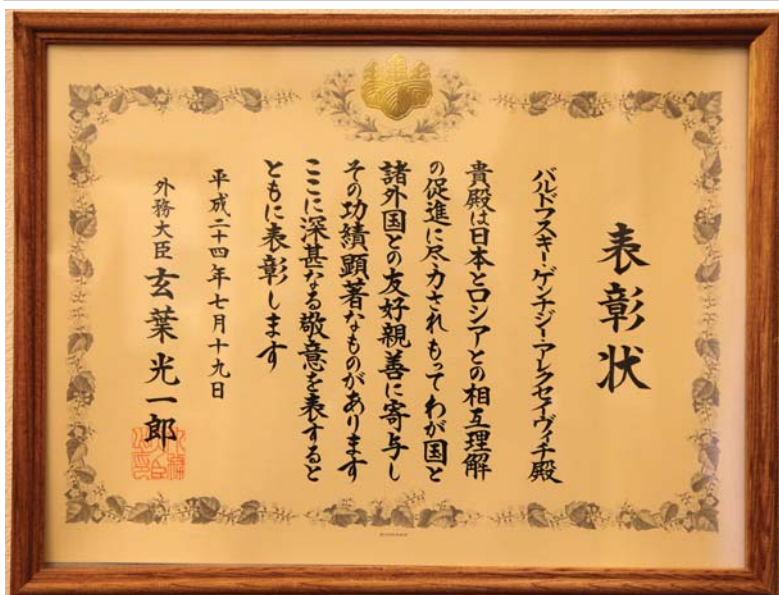 表彰状
バルドフスキー・ゲンナジー・アレクセイヴィチ殿
貴殿は日本とロシアとの相互理解
の促進に尽力されもってわが国と
諸外国との友好親善に寄与し
その功績顕著なものがあります
ここに深甚なる敬意を表すると
ともに表彰します
平成二十四年七月十九日
外務大臣 玄葉光一郎